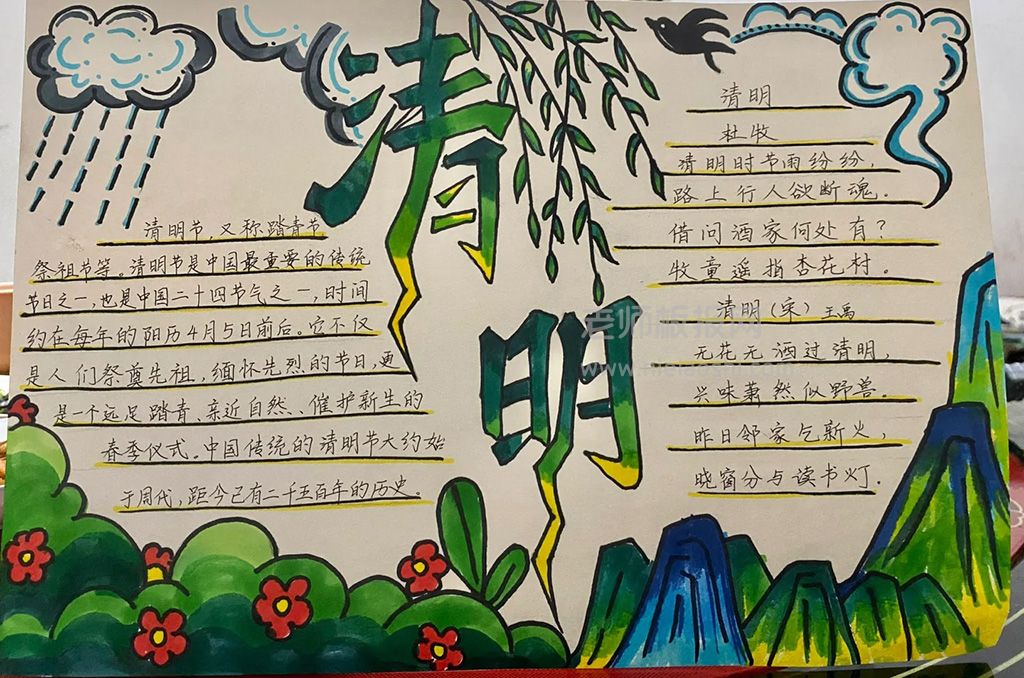 清明
清明节,又称踏青节
祭祖节等。清明节是中国最重要的传统
节日之一,也是中国二十四节气之一,时间
约在每年的阳历4月5日前后。它不仅
是人们祭奠先祖,缅怀先烈的节日,更
是一个远足踏青、亲近自然、催护新生的
春季仪式。中国传统的清明节大约始
于周代,距今已有二千五百年的历史。
清明
杜牧
清明时节雨纷纷,
路上行人欲断魂。
借问酒家何处有?
牧童遥指杏花村。
清明(宋)王禹
无花无酒过清明,
兴味萧然似野兽。
昨日邻家乞新火,
晓窗分与读书灯.
老师板报网